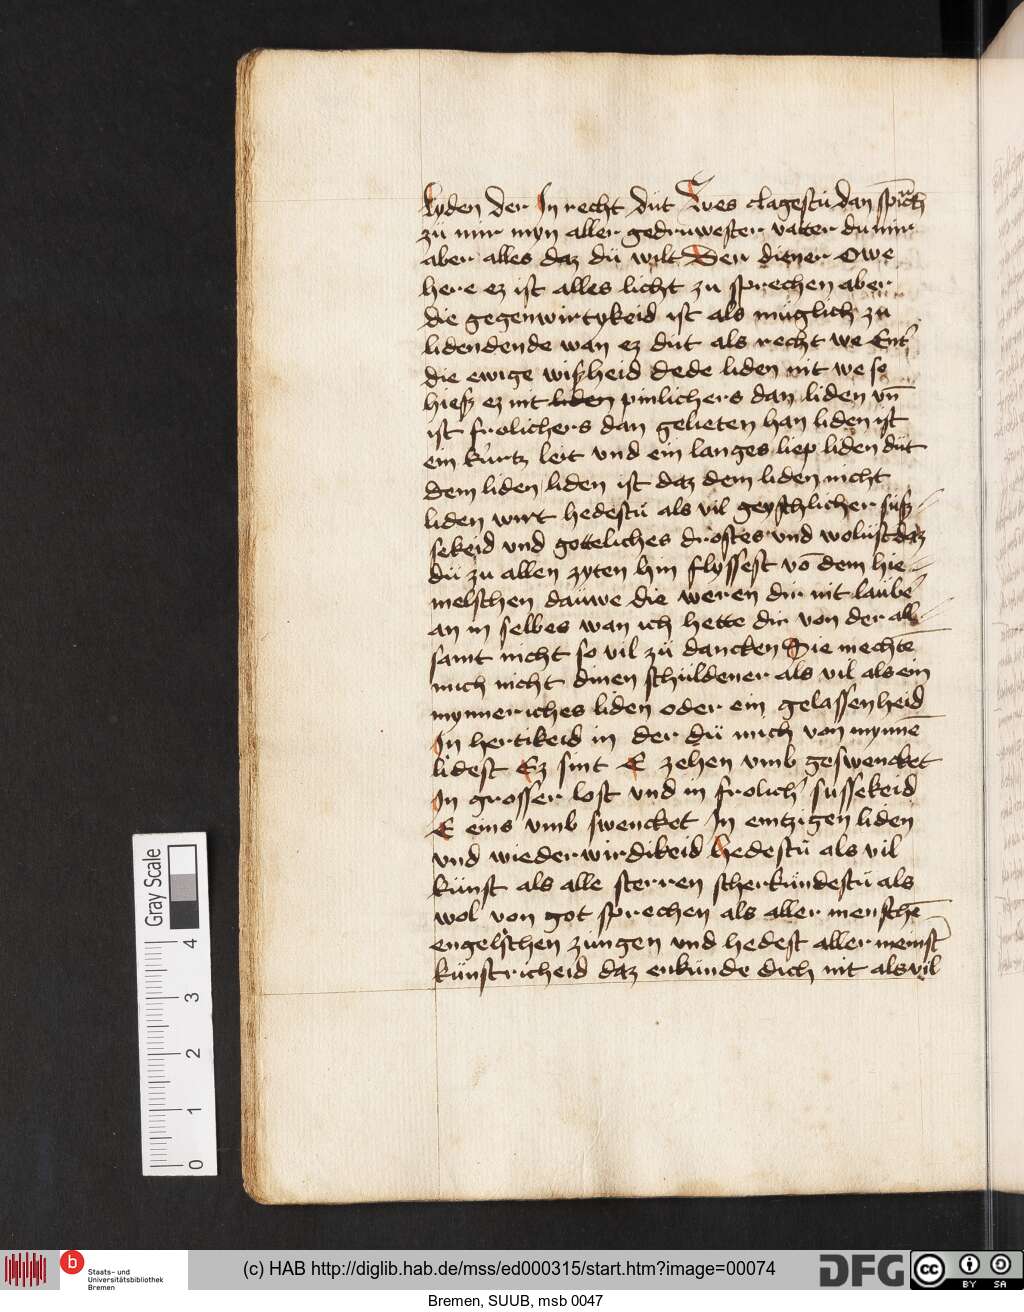 lyden der In recht düt Wes clagestu dan sprich
zü mir myn aller gedruwester vatter du mir
aber alles daz dü wilt Der diener Owe
here ez ist alles licht zu sprechen aber
die gegenwirtykeid ist als müglich zu
lidendende wan ez düt als recht we Ent'
die ewige wißheid dede liden nit we so
hieß ez nit liden pinlichers dan liden vn̄
ist frolichers dan gelieten han liden ist
ein kurtz leit vnd ein langes liep liden düt
dem liden liden ist daz dem liden nicht
liden wirt hedestu als vil geystlicher süß
sekeid vnd gotteliches drostes vnd wolüst daz
dü zu allen zyten hin flyssest vō dem hie
melschen dauwe die weren dir nit laube
an in selbes wan ich hette dir von der all
samt nicht so vil zü dancken Sie mechtē
mich nicht dinen schüldener als vil als ein
mynneriches liden oder ein gelassenheid
In hertikeid in der dü mich von mynnē
lidest Ez sint E zehen vmb geswencket
In grosser lost vnd in frolich' sussekeid
E eins vmb swencket In emtzigen liden
vnd wiederwirdikeid hedestü als vil
künst als alle sterren scherkündestü als
wol von got sprechen als aller menschē
engelschen zungen vnd hedest aller meinst
künstricheid daz enkunde dich nit als vil
Gray Scale
4
3
2
1
0
b
Staats- und
Universitätsbibliothek
Bremen
(c) HAB http://diglib.hab.de/mss/ed000315/start.htm?image=00074
DFG
cc
BY SA
Bremen, SUUB, msb 0047